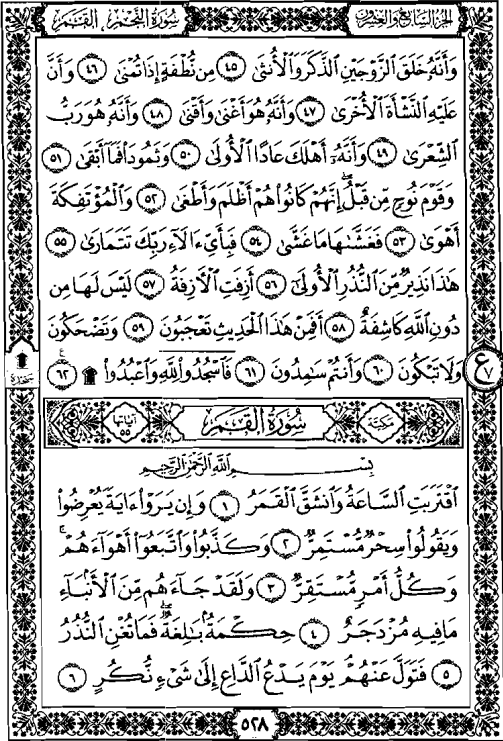 الجزء السابع والعشرون سُورَةُ النَّجْمِ ، القَمَرِ
وَأَنَّهُۥ خَلَقَ ٱلزَّوْجَيْنِ ٱلذَّكَرَ وَٱلْأُنثَىٰ ٤٥ مِن نُّطْفَةٍ إِذَا تُمْنَىٰ ٤٦ وَأَنَّ
عَلَيْهِ ٱلنَّشْأَةَ ٱلْأُخْرَىٰ ٤٧ وَأَنَّهُۥ هُوَ أَغْنَىٰ وَأَقْنَىٰ ٤٨ وَأَنَّهُۥ هُوَ رَبُّ
ٱلشِّعْرَىٰ ٤٩ وَأَنَّهُۥٓ أَهْلَكَ عَادًا ٱلْأُولَىٰ ٥٠ وَثَمُودَا۟ فَمَآ أَبْقَىٰ ٥١
وَقَوْمَ نُوحٍ مِّن قَبْلُ ۖ إِنَّهُمْ كَانُوا۟ هُمْ أَظْلَمَ وَأَطْغَىٰ ٥٢ وَٱلْمُؤْتَفِكَةَ
أَهْوَىٰ ٥٣ فَغَشَّىٰهَا مَا غَشَّىٰ ٥٤ فَبِأَىِّ ءَالَآءِ رَبِّكَ تَتَمَارَىٰ ٥٥
هَـٰذَا نَذِيرٌ مِّنَ ٱلنُّذُرِ ٱلْأُولَىٰٓ ٥٦ أَزِفَتِ ٱلْـَٔازِفَةُ ٥٧ لَيْسَ لَهَا مِن
دُونِ ٱللَّهِ كَاشِفَةٌ ٥٨ أَفَمِنْ هَـٰذَا ٱلْحَدِيثِ تَعْجَبُونَ ٥٩ وَتَضْحَكُونَ
وَلَا تَبْكُونَ ٦٠ وَأَنتُمْ سَـٰمِدُونَ ٦١ فَٱسْجُدُوا۟ لِلَّهِ وَٱعْبُدُوا۟ ۩ ٦٢
ع ٧
سجدة
مكيّة سُورَةُ القَمَرِ آياتها ٥٥
بِسْمِ ٱللَّهِ ٱلرَّحْمَـٰنِ ٱلرَّحِيمِ
ٱقْتَرَبَتِ ٱلسَّاعَةُ وَٱنشَقَّ ٱلْقَمَرُ ١ وَإِن يَرَوْا۟ ءَايَةً يُعْرِضُوا۟
وَيَقُولُوا۟ سِحْرٌ مُّسْتَمِرٌّ ٢ وَكَذَّبُوا۟ وَٱتَّبَعُوٓا۟ أَهْوَآءَهُمْ ۚ
وَكُلُّ أَمْرٍ مُّسْتَقِرٌّ ٣ وَلَقَدْ جَآءَهُم مِّنَ ٱلْأَنۢبَآءِ
مَا فِيهِ مُزْدَجَرٌ ٤ حِكْمَةٌۢ بَـٰلِغَةٌ ۖ فَمَا تُغْنِ ٱلنُّذُرُ
٥ فَتَوَلَّ عَنْهُمْ ۘ يَوْمَ يَدْعُ ٱلدَّاعِ إِلَىٰ شَىْءٍ نُّكُرٍ ٦
٥٢٨